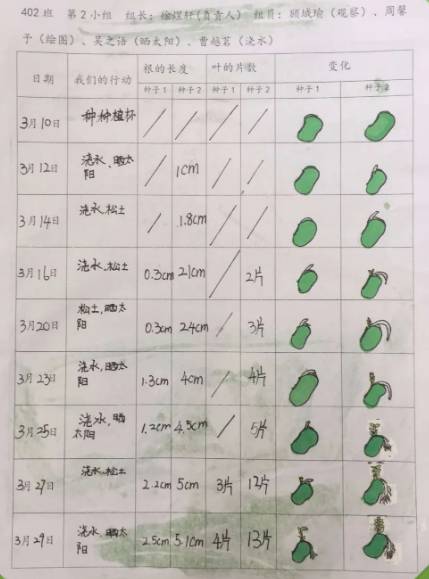 402班 第2小组 组长：徐煜轩（负责人） 组员：顾城瑜（观察）、周馨
子（绘图）、吴之语（晒太阳）、曹越茗（浇水）
日期 我们的行动 根的长度 叶的片数 变化
种子1 种子2 种子1 种子2 种子1 种子2
3月10日 种种植杯 / / / /
3月12日 浇水、晒太
阳 / 1cm / /
3月14日 浇水、松土 / 1.8cm / /
3月16日 浇水、松土 0.3cm 2.1cm / 2片
3月20日 松土、晒太
阳 0.3cm 2.4cm / 3片
3月23日 浇水、晒太
阳 1.3cm 4cm / 4片
3月25日 浇水、晒
太阳 1.2cm 4.5cm / 5片
3月27日 浇水、松土 2.2cm 5cm 3片 12片
3月29日 浇水、晒太
阳 2.5cm 5.1cm 4片 13片